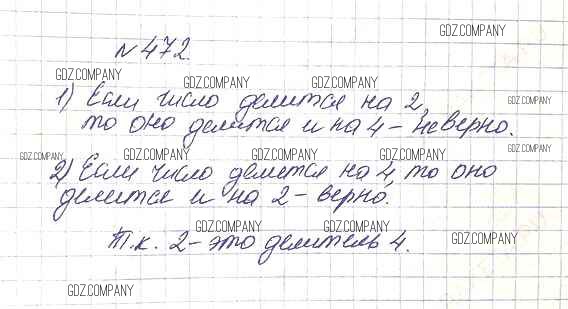 № 472.
GDZ.COMPANY
GDZ.COMPANY
GDZ.COMPANY
GDZ.COMPANY
1) Если число делится на 2,
GDZ.COMPANY
то оно делится и на 4 – неверно.
GDZ.COMPANY
GDZ.COMPANY
GDZ.COMPANY
GDZ.COMPANY
GDZ.COMPANY
2) Если число делится на 4, то оно
делится и на 2 – верно.
GDZ.COMPANY
GDZ.COMPANY
GDZ.COMPANY
Т.к. 2 – это делитель 4.
GDZ.COMPANY